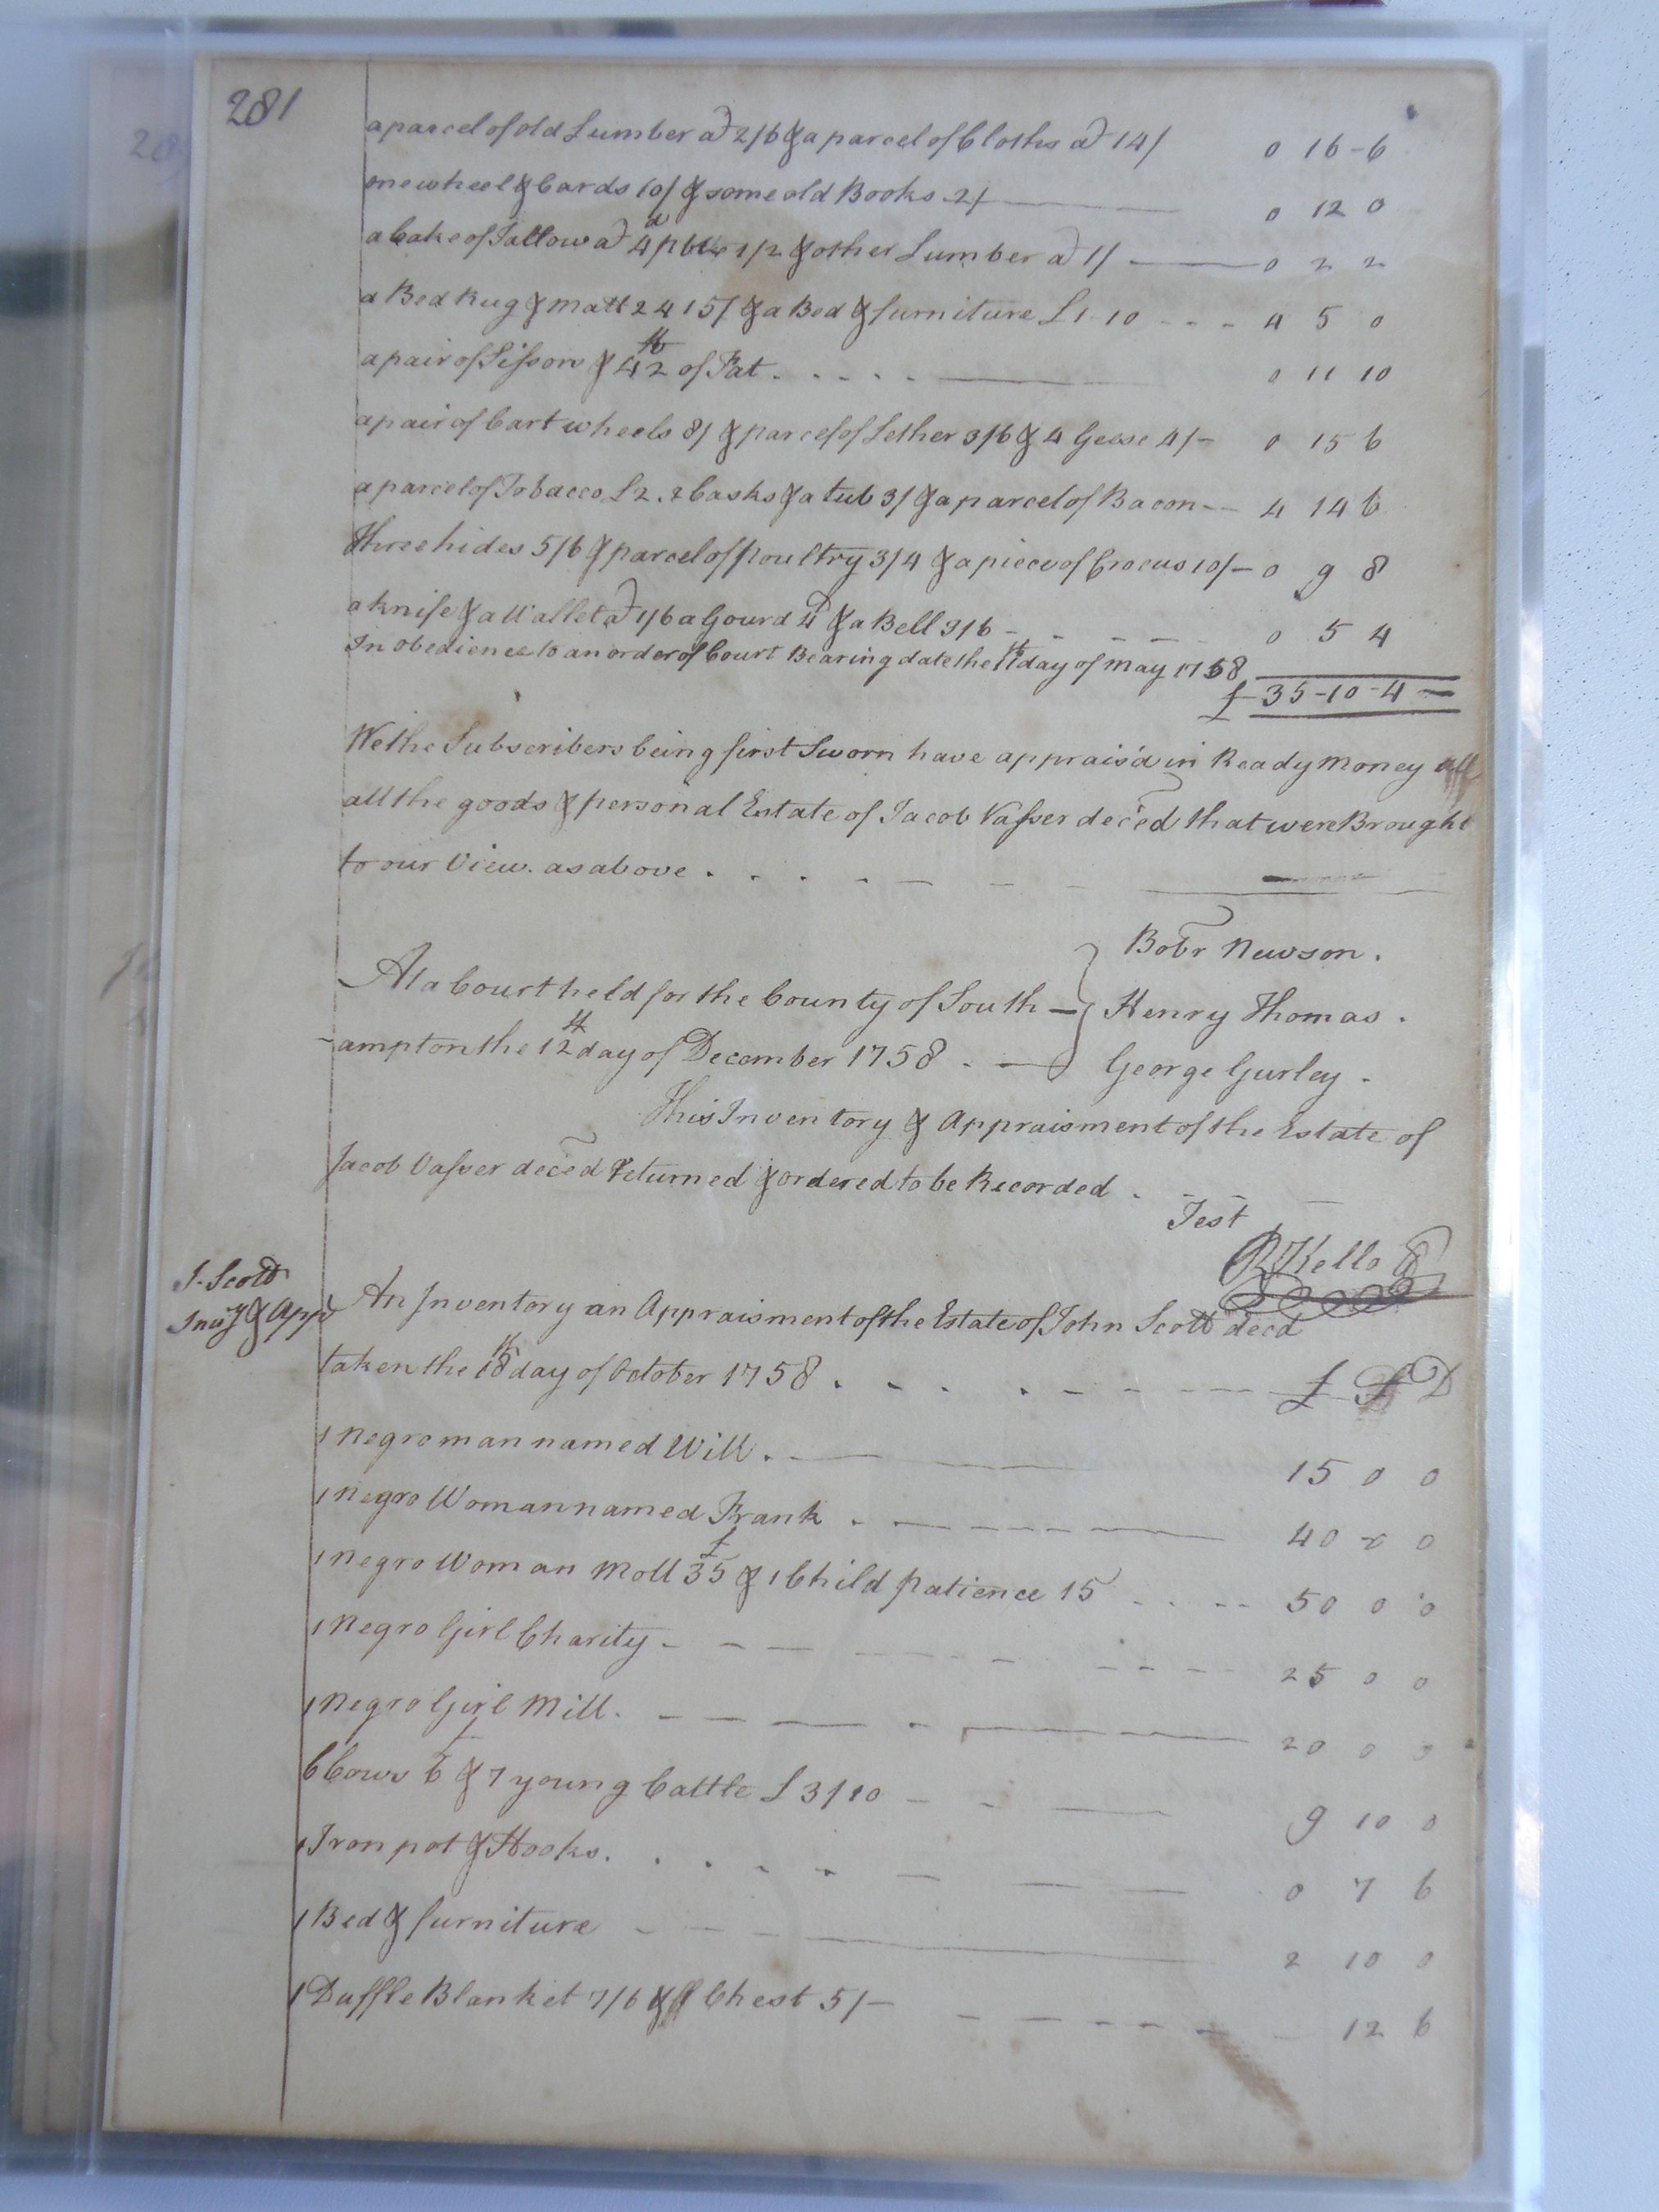 281
a parcel of old Lumber a 2/6 & a parcel of Cloths a 14/ 0 16-6
one wheel & Cards 10/ & some old Books 2/ 0 12 0
a Cake of Tallow a 4d p 1/2 & other Lumber a 1/ 0 2 2
a Bed Rug & matt 2 " 15/ & a Bed & furniture £1-10 4 5 0
a pair of Sissors & 42lb of Fat 0 11 10
a pair of Cart wheels 8/ & parcel of Lether 3/6 & 4 Geese 4/- 0 15 6
a parcel of Tobacco £2. 2 Casks & a tub 3/ & a parcel of Bacon -- 4 14 6
Three hides 5/6 & parcel of poultry 3/4 & a piece of Crocus 10/- 0 9 8
a knife & a Wallet a 1/6 a Gourd 4d & a Bell 3/6 0 5 4
In obedience to an order of Court Bearing date the 11th day of May 1758
£ 35-10-4
We the Subscribers being first Sworn have apprais'd in Ready Money
all the goods & personal Estate of Jacob Vasser deced that were Brought
to our View. as above
Bobr Newsom.
At a Court held for the County of South- Henry Thomas.
-ampton the 12th day of December 1758. George Gurley.
This Inventory & Appraisment of the Estate of
Jacob Vasser deced Returned & ordered to be Recorded.
Test
R Kello
J. Scott
Invy & Appt
An Inventory an Appraisment of the Estate of John Scott decd
taken the 18th day of October 1758 £ S D
1 Negro man named Will. 15 0 0
1 Negro Woman named Frank 40 0 0
1 Negro Woman Moll £35 & 1 Child Patience 15 50 0 0
1 Negro Girl Charity 25 0 0
1 Negro Girl Mill. 20 0 0
6 Cows £6 & 7 young Cattle £3/10 9 10 0
1 Iron pot & Hooks. 0 7 6
1 Bed & furniture 2 10 0
1 Duffle Blanket 7/6 & 1 Chest 5/- 12 6